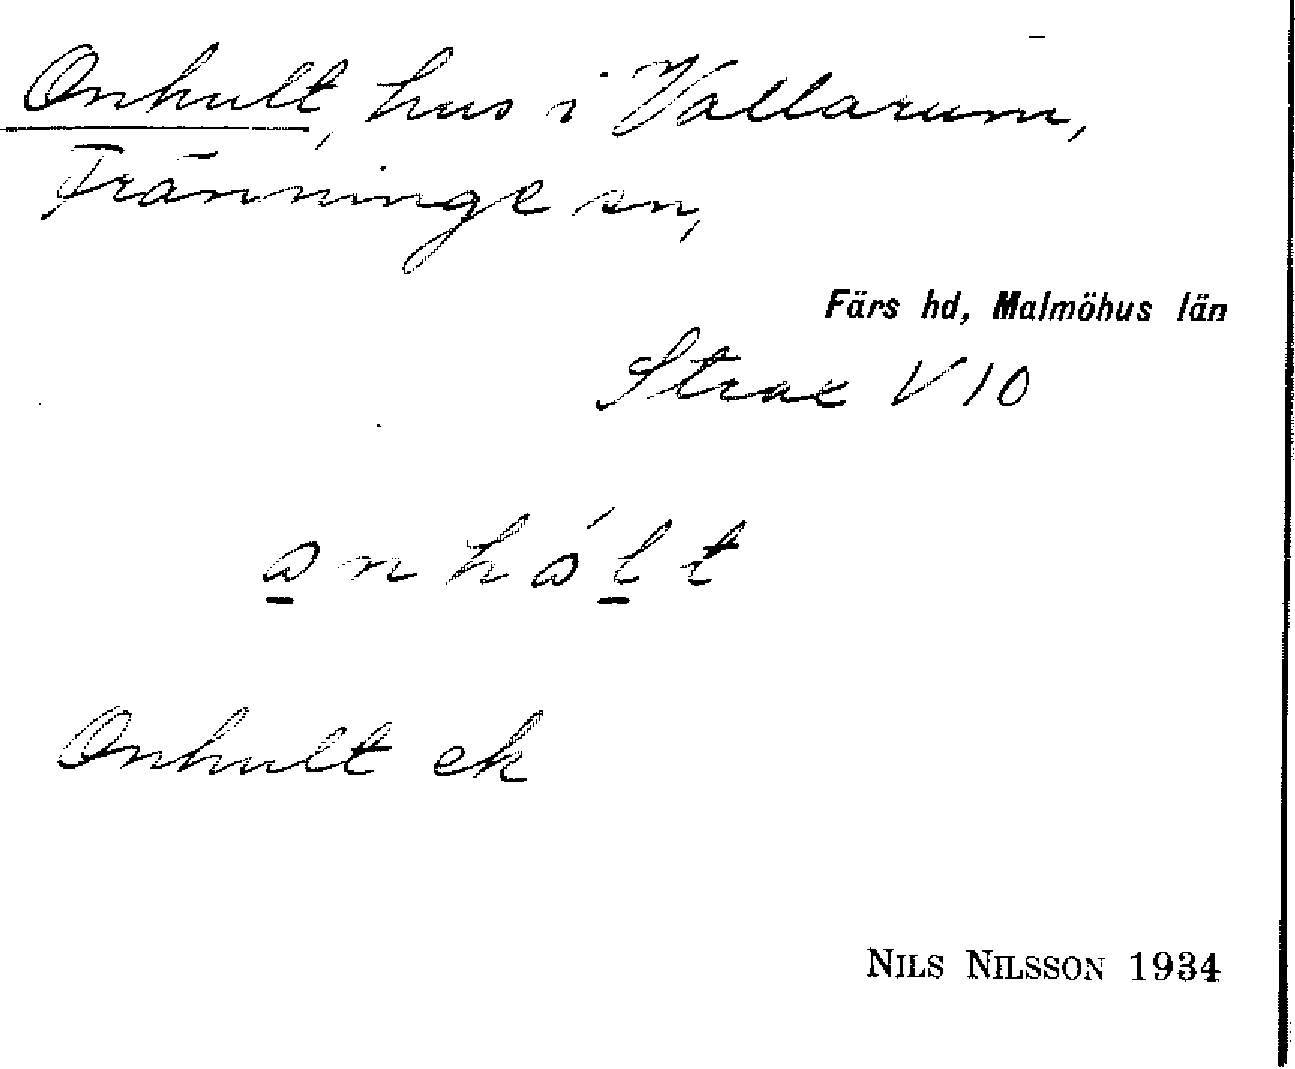 Onhult, hus i Vallarum,
Fränninge sn,
Färs hd, Malmöhus län
Strax V 10
Onhult ek
NILS NILSSON 1934